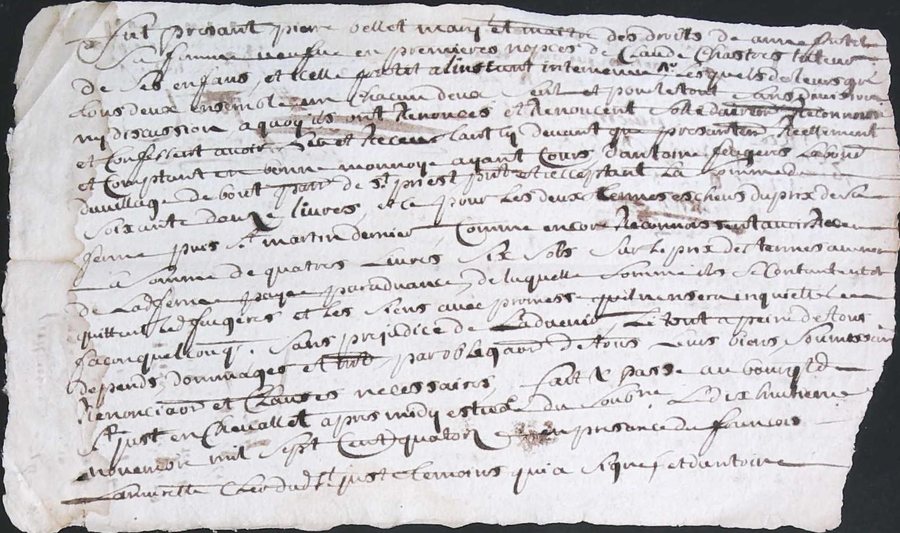 fut presant pierre bellet mary et maitre des droits de anne
sa femme veufve en premieres nopces de Claude Chastres tuteur
de ses enfans, et icelle a linstant intervenue lesquels de leurs gré
tous deux ensemble un chacun deux seul et pour le tout sans division
ny discussion, a quoy ils ont Renoncés et Renoncent
et Confessent avoir et Receus tant cy devant que presantem Reellement
et Comptant en bonne monnoye ayant Cours dantoine labour
du village de bout parr de st priest la somme de
soixante douze livres, et ce pour les deux termes escheus du prix de sa
ferme puis st martin dernier, Comme encor Reconnoissent avoir Receu
La somme de quatres livres six sols sur le prix des termes
de Lad ferme paye par advance, de laquelle somme ils se Contantent et
quittent led et les siens avec promesse quil nen sera inquietté en
façon quelconq, sans prejudice de Ladvenir, Le tout a peine de tous
depends dommages et par obliga͞on de tous Leurs biens soumissõn
Renoncia͞on et Clauses necessaires, fait & passé au bourg de
st just en Chevallet apres midy du Loubre, Le dix huitieme
novembre mil sept Cent quatorze en presance du francois
Clerc dud st just temoins qui a signé et dantoine